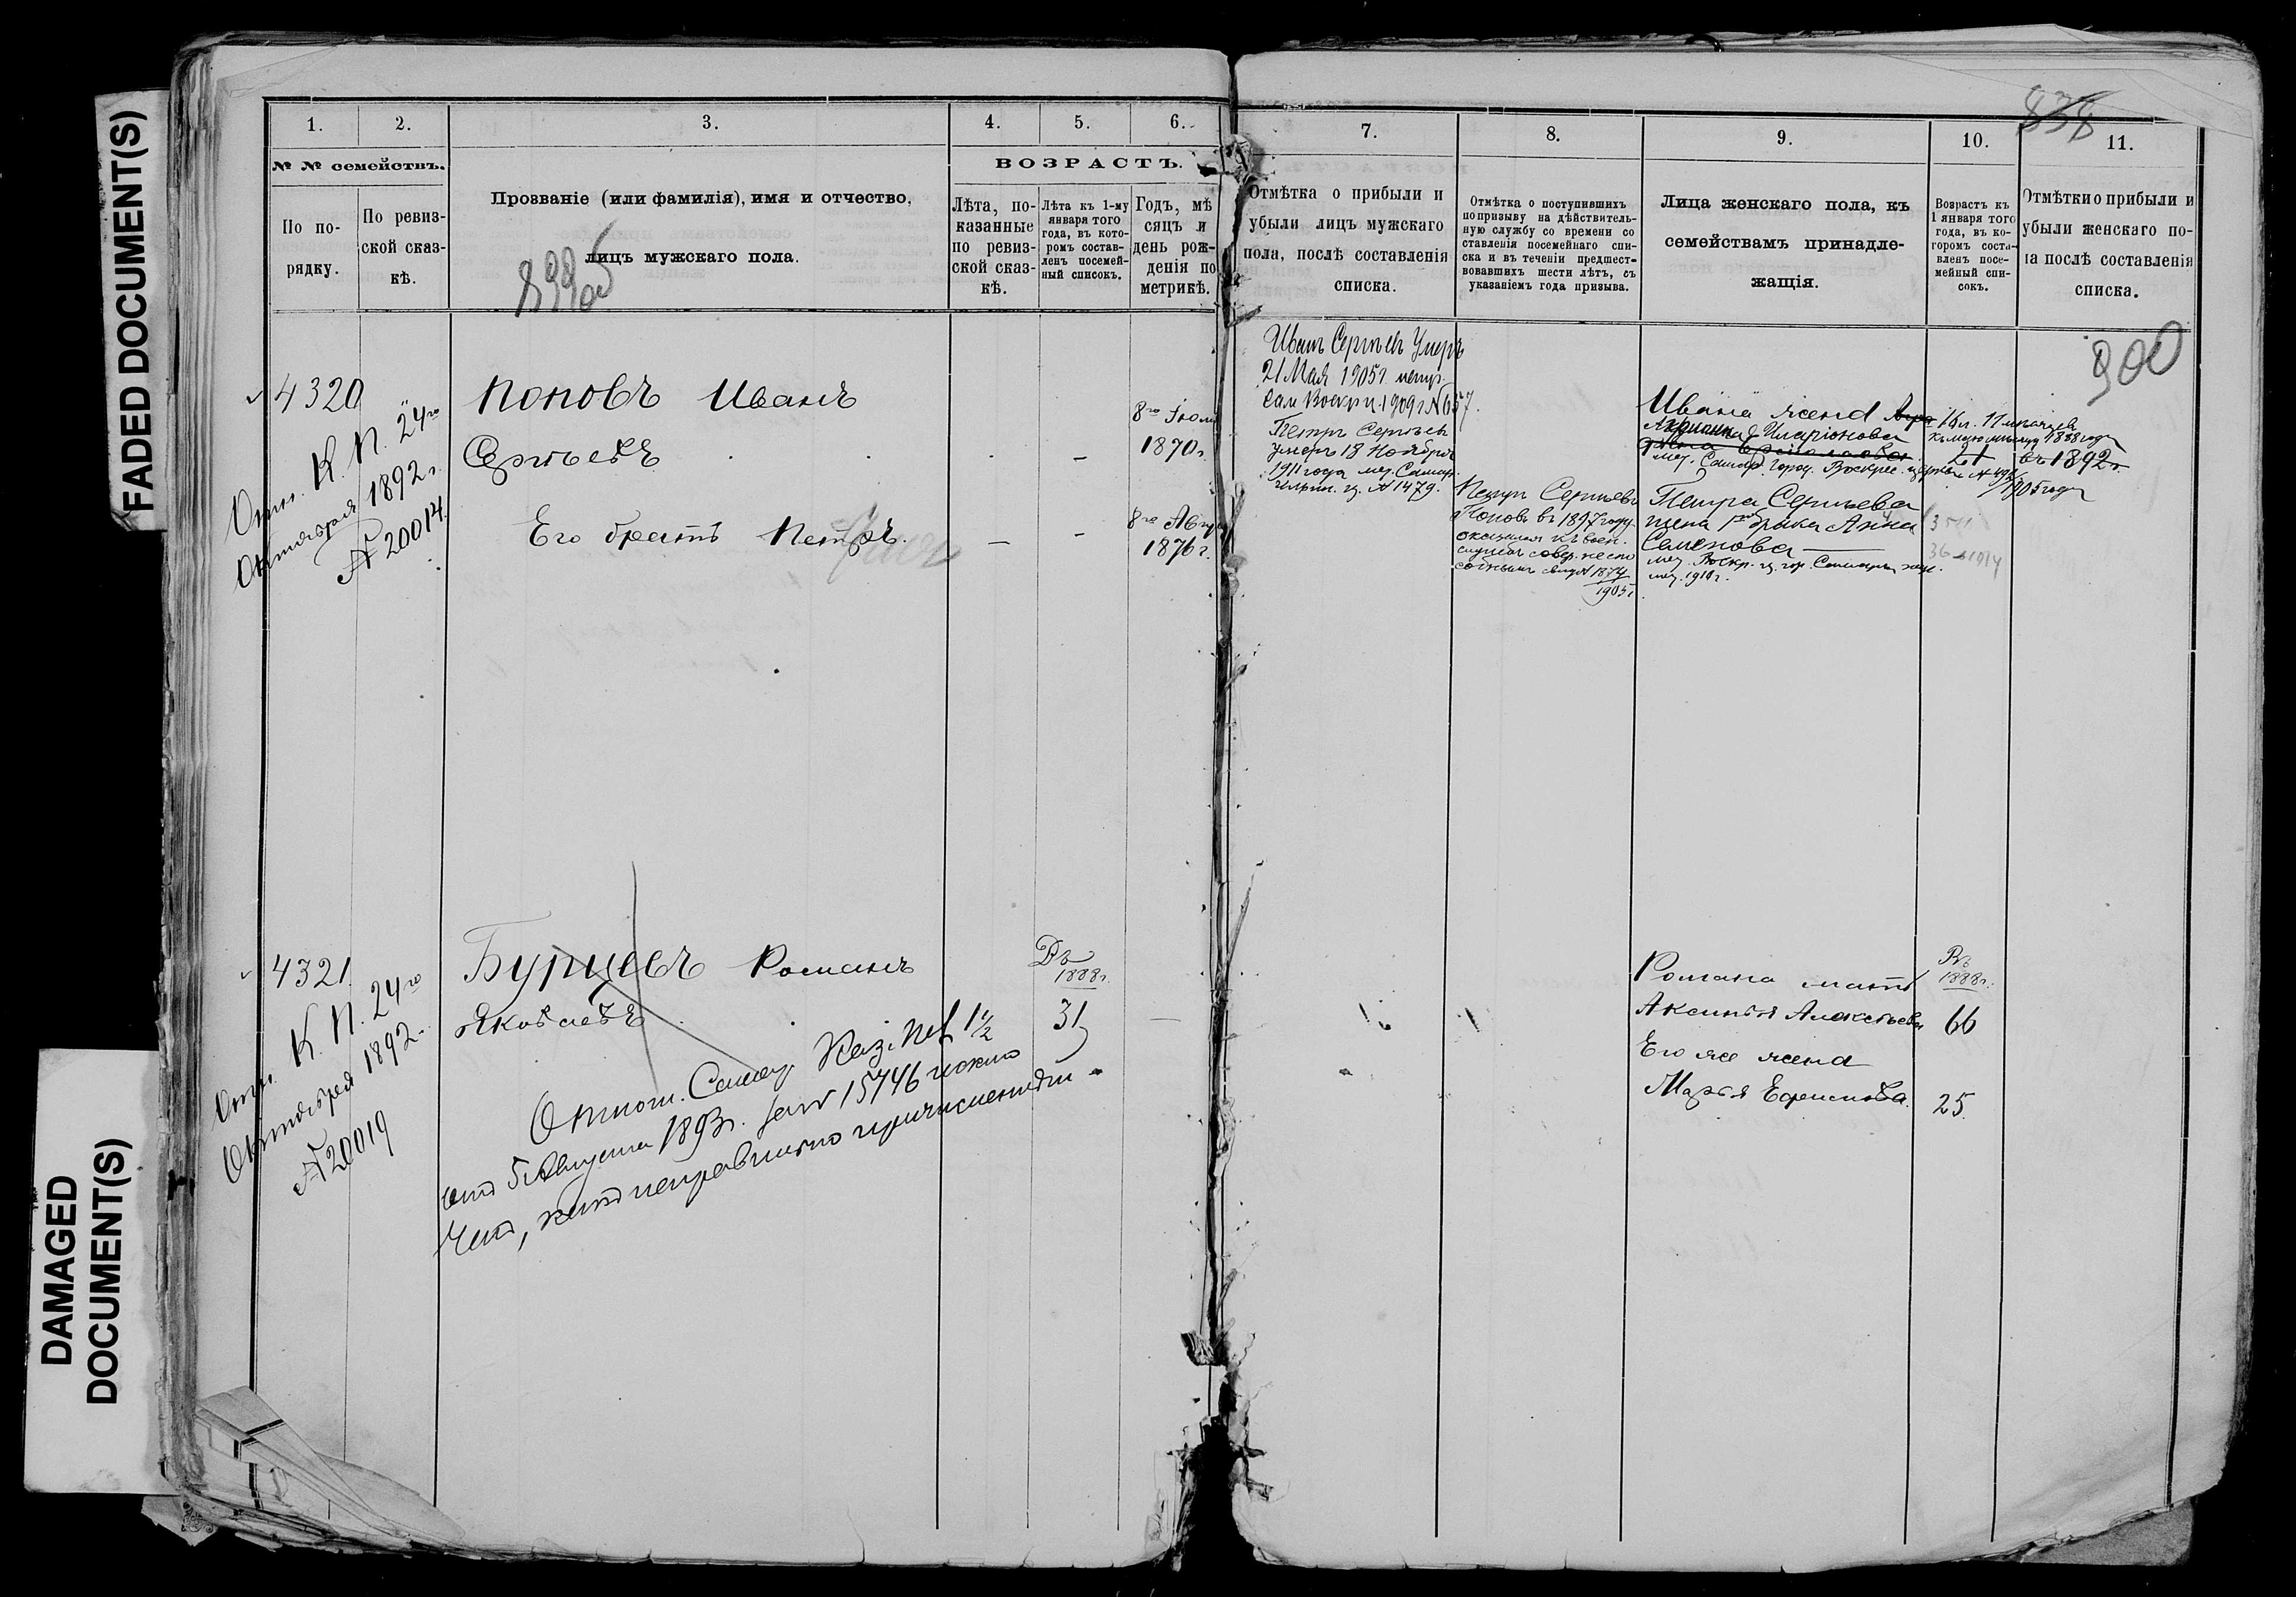 FADED DOCUMENT(S)
DAMAGED
DOCUMENT(S)
1.
2.
3.
4.
5.
6.
№ № семействъ.
По по-
рядку.
По ревиз-
ской сказ-
кѣ.
Прозваніе (или фамилія), имя и отчество,
лицъ мужскаго пола.
899об
ВОЗРАСТЪ.
Лѣта, по-
казанные
по ревиз-
ской сказ-
кѣ.
Лѣта къ 1-му
января того
года, въ кото-
ромъ состав-
ленъ посемей-
ный списокъ.
Годъ, мѣ
сяцъ и
день рож-
денія по
метрикѣ.
4320
Отн. К. П. 24го
Октября 1892 г.
№ 20014.
Поповъ Иванъ
Сергѣевъ
8го Іюля
1870 г.
Его братъ Петръ.
8го Авгу
1876 г.
4321
Отн. К. П. 24го
Октября 1892 г.
№ 20019
Бурцевъ Романъ
Яковлевъ
Въ
1888 г.
31
Отнош. Самар. Каз. Пал
отъ 5 Августа 1893 г. за № 15746 исклю
ченъ, какъ неправильно причисленный
7.
8.
9.
10.
11.
838
Отмѣтка о прибыли и
убыли лицъ мужскаго
пола, послѣ составленія
списка.
Отмѣтка о поступившихъ
по призыву на дѣйствитель-
ную службу со времени со
ставленія посемейнаго спи-
ска и въ теченіи предшест-
вовавшихъ шести лѣтъ, съ
указаніемъ года призыва.
Лица женскаго пола, къ
семействамъ принадле-
жащія.
Возрастъ къ
1 января того
года, въ ко-
торомъ соста-
вленъ посе-
мейный спи-
сокъ.
Отмѣтки о прибыли и
убыли женскаго по-
ла послѣ составленія
списка.
900
Иванъ Сергѣевъ Умеръ
21 Мая 1905 г. метр.
Сам Воскр ц. 1909 г № 657.
Петръ Сергѣевъ
умеръ 18 Ноября
1911 года мет. Самар.
ц. № 1479.
Петръ Сергѣевъ
Поповъ въ 1897 году
оказался къ воен.
службѣ совер. неспо
собнымъ свид № 1874
1905 г.
Ивана жена
Иларіонова
мет. Самар. город. Воскрес. церкви №
1905 года
16 л. 11 мѣсяцевъ
1888 года
21 въ 1892 г.
Петра Сергѣева
жена 1го брака Анна
Семенова
мет. Воскр. ц. гор. Самары
мет. 1910 г.
36
1914
Романа мать
Аксинья Алексѣева
Его же жена
Марья Ефимова.
Въ
1888 г.
66
25.